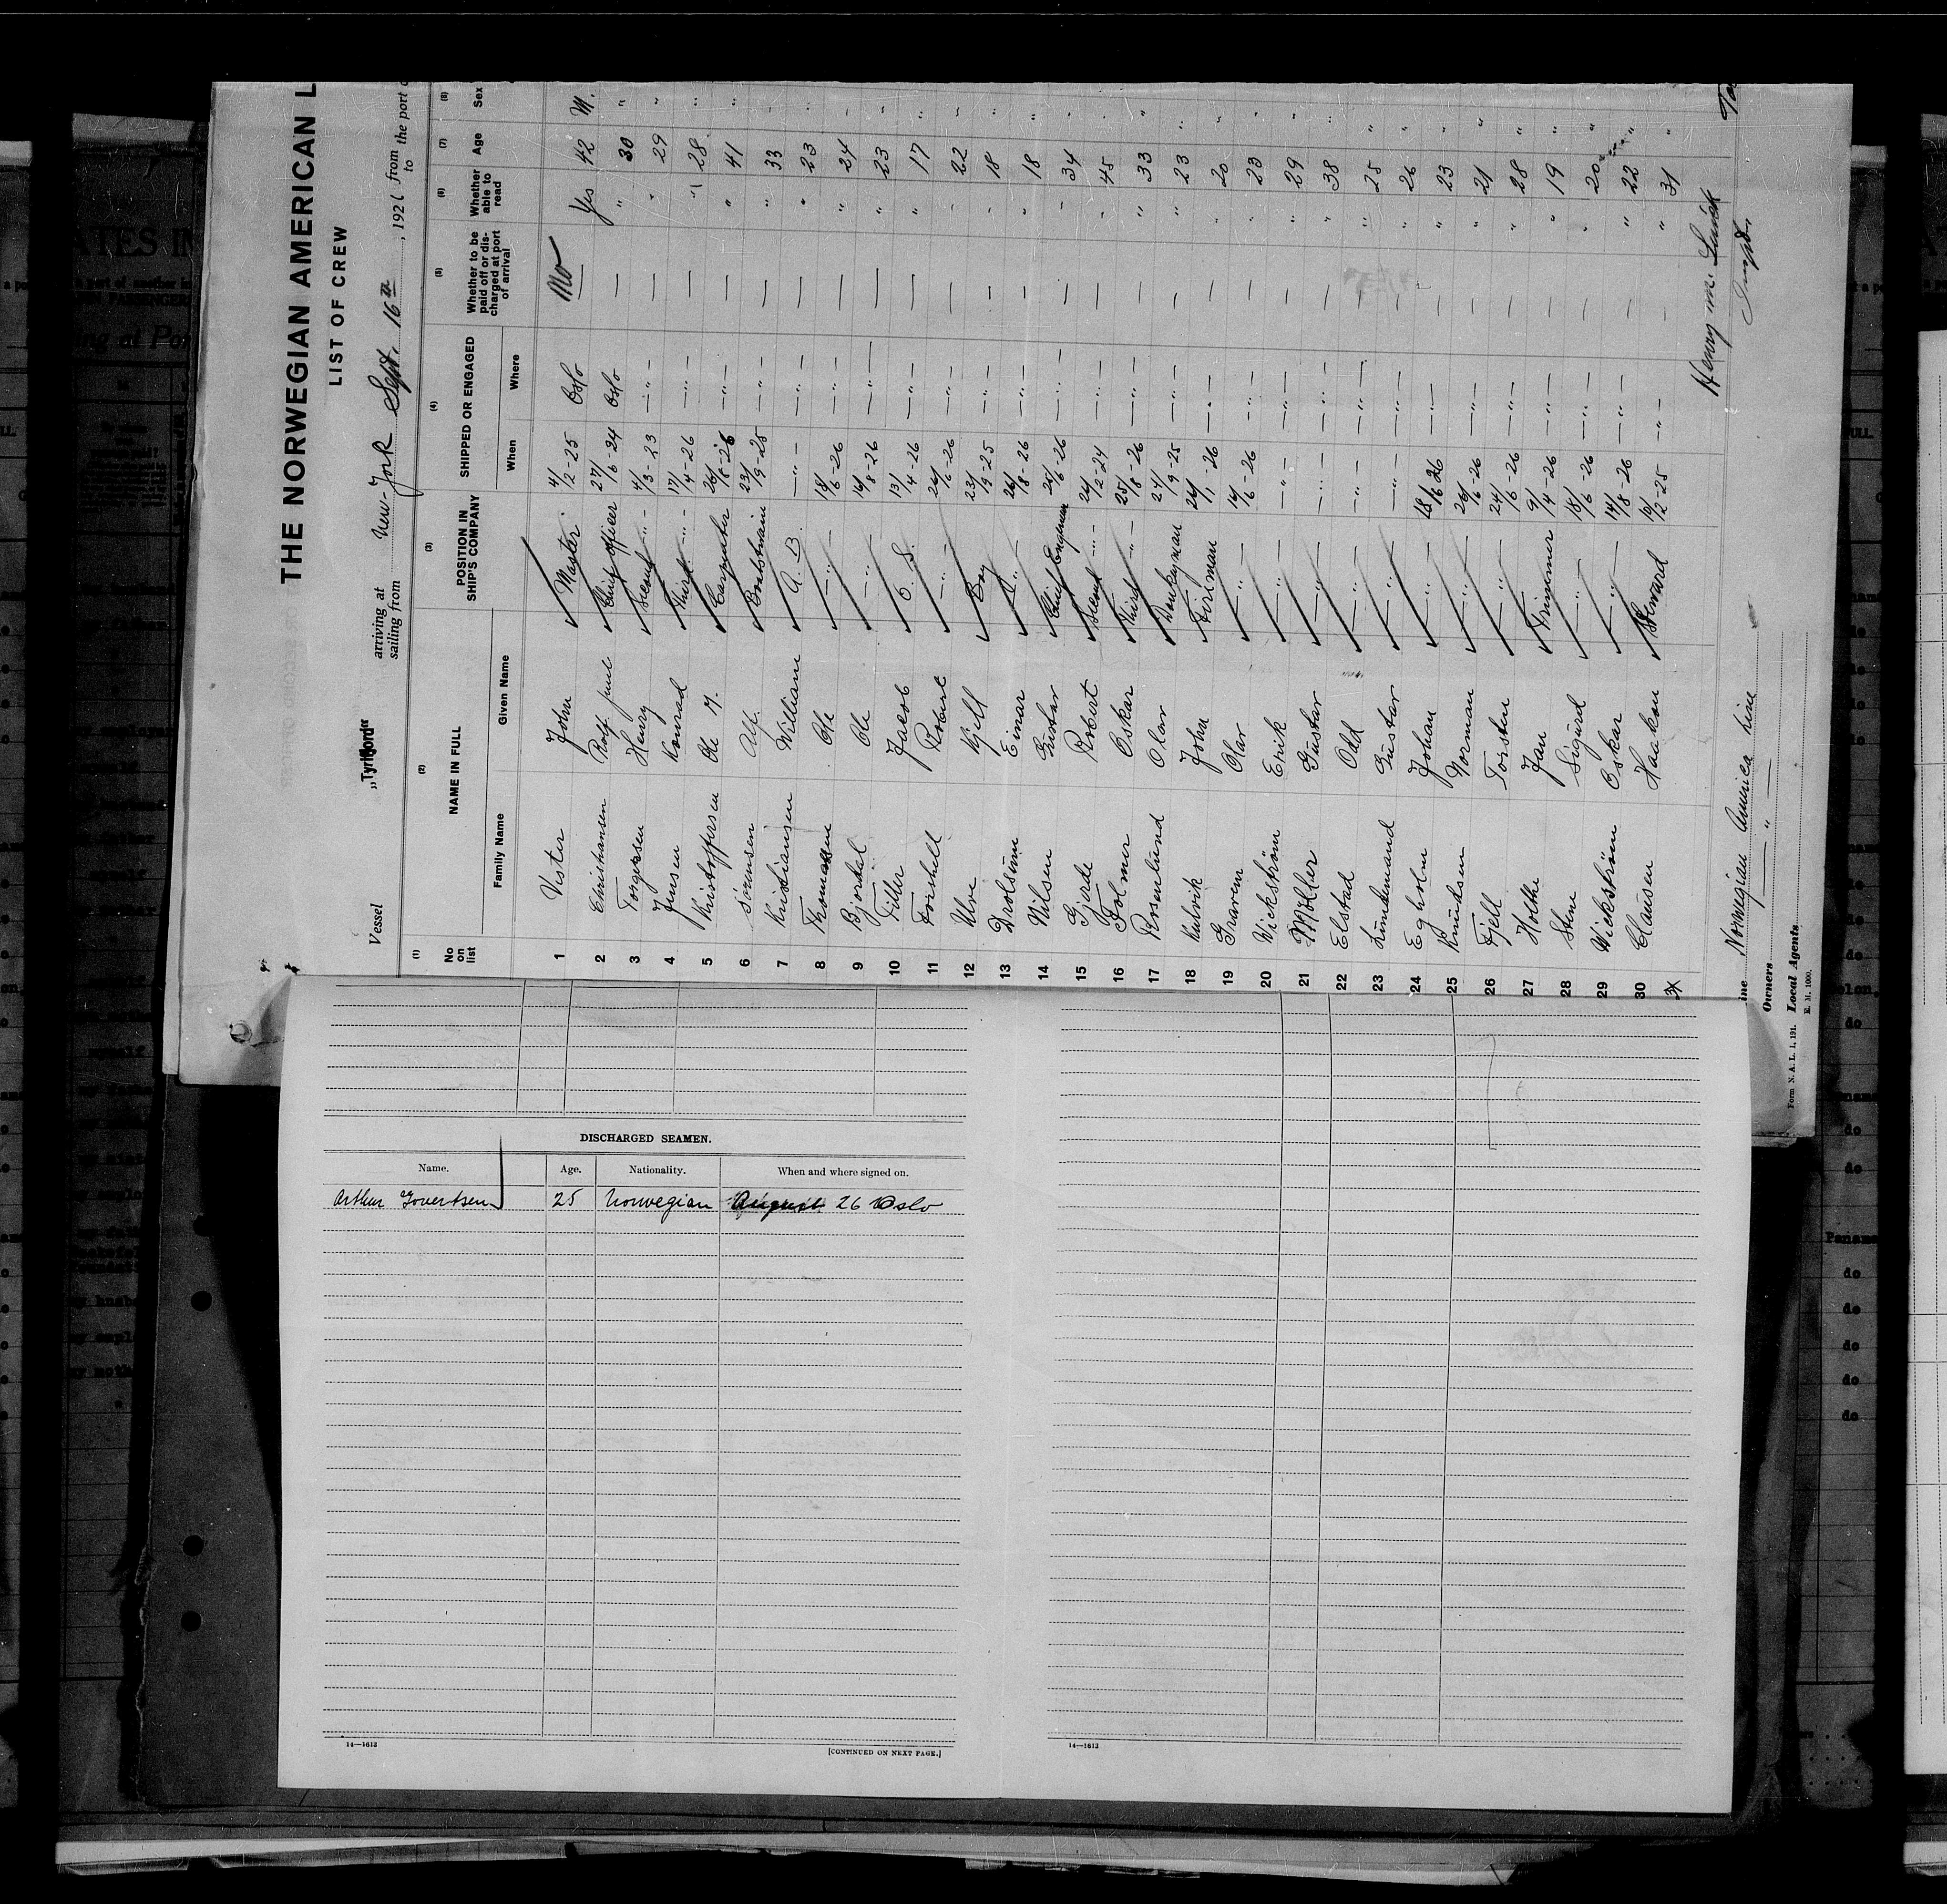 THE NORWEGIAN AMERICAN L
LIST OF CREW
Vessel "Tyrifjord" arriving at sailing from New-York Sept. 16th, 192( from to the port o
(1) (2) (3) (4) (5) (6) (7) (8)
No on list NAME IN FULL POSITION IN SHIP'S COMPANY SHIPPED OR ENGAGED Whether to be paid off or discharged at port of arrival Whether able to read Age Sex
Family Name Given Name When Where
1 Vister John Master 4/2-25 Oslo No — Yes 42 M.
2 Christiansen Rolf Juul Chief Officer 27/6-24 Oslo — " 30 "
3 Torgersen Henry Second -"- 4/3-23 -"- — " 29 "
4 Jensen Konrad Third -"- 17/4-26 -"- — " 28 "
5 Kristoffersen Ole M. Carpenter 26/8-26 -"- — " 41 "
6 Sörensen Alf. Boatswain 23/9-25 -"- — " 33 "
7 Kristiansen William A.B. -"- -"- — " 23 "
8 Thomassen Ole -"- 18/6-26 -"- — " 24 "
9 Bjordal Ole -"- 16/8-26 -"- — " 23 "
10 Tiller Jacob O.S. 13/4-26 -"- — " 17 "
11 Forshell Robert -"- 26/6-26 -"- — " 22 "
12 Ulve Kjell Boy 23/9-25 -"- — " 18 "
13 Drolsüm Einar -"- 26/8-26 -"- — " 18 "
14 Nilsen Gustav Chief Engeneer 25/6-26 -"- — " 34 "
15 Gjerde Robert Second -"- 26/2-24 -"- — " 45 "
16 Folmer Oskar Third -"- 25/8-26 -"- — " 33 "
17 Rosenlund Olav Donkeyman 24/9-25 -"- — " 23 "
18 Kulvik John Fireman 26/1-26 -"- — " 20 "
19 Gravem Olav -"- 16/6-26 -"- — " 23 "
20 Wickström Erik -"- -"- -"- — " 29 "
21 Möller Gustav -"- -"- -"- — " 38 "
22 Elstad Odd -"- -"- -"- — " 25 "
23 Lindemand Gustav -"- -"- -"- — " 26 "
24 Egholm Johan -"- 18/6 26 -"- — " 23 "
25 Knudsen Norman -"- 26/6-26 -"- — " 21 "
26 Fjell Torsten -"- 24/6-26 -"- — " 28 "
27 Holthe Jan Trimmer 9/4-26 -"- — " 19 "
28 Sten Sigurd -"- 18/6-26 -"- — " 20 "
29 Wickström Oskar -"- 14/8-26 -"- — " 22 "
30 Clausen Haakon Steward 10/2-25 -"- — " 31 "
31
Henry M.
ine Norwegian America Line
Owners — " —
Local Agents
Form N. A. L. 1, 191. E. M. 1000.
DISCHARGED SEAMEN.
Name. Age. Nationality. When and where signed on.
Arthur Govertsen 25 Norwegian August 26 Oslo
14—1613
[CONTINUED ON NEXT PAGE.]
14—1613